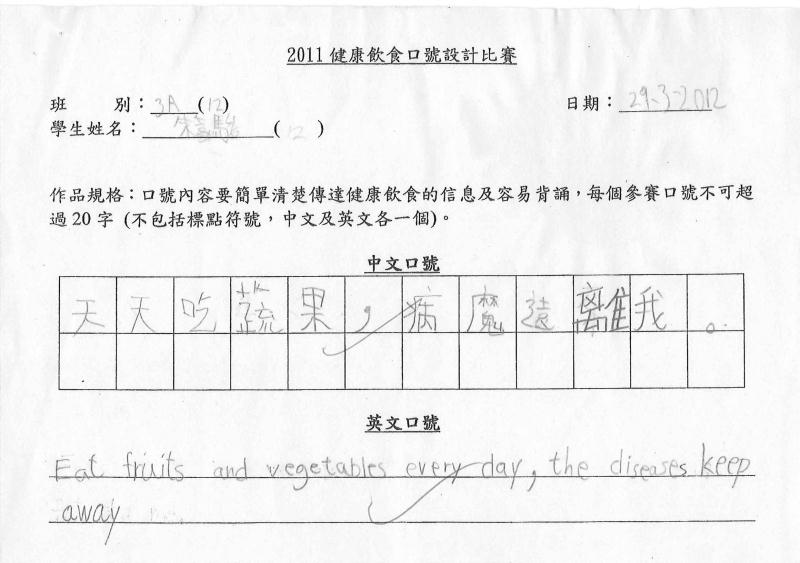 2011 健康飲食口號設計比賽
班　　別：3A(12)
日期：29-3-2012
學生姓名：朱 駿(12)
作品規格：口號內容要簡單清楚傳達健康飲食的信息及容易背誦，每個參賽口號不可超
過 20 字 (不包括標點符號，中文及英文各一個)。
中文口號
天天吃蔬果，病魔遠離我。
英文口號
Eat fruits and vegetables every day, the diseases keep
away